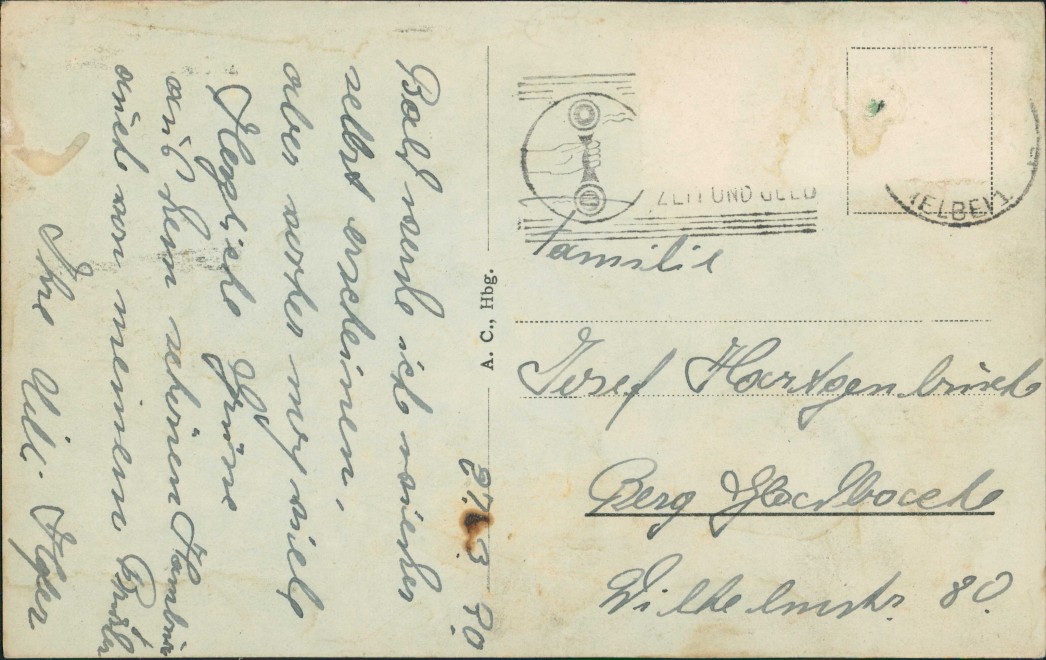 27. 3
Bald werde ich wieder
selbst erscheinen,
aber vorher noch viele
Herzliche Grüsse
aus dem schönen Hamburg
auch von meinem Bruder
Ihre
A. C., Hbg.
ZEIT UND GELD
(ELBE) 1
Familie
Josef Hartgenbusch
Berg Gladbach
Wilhelmstr 80.